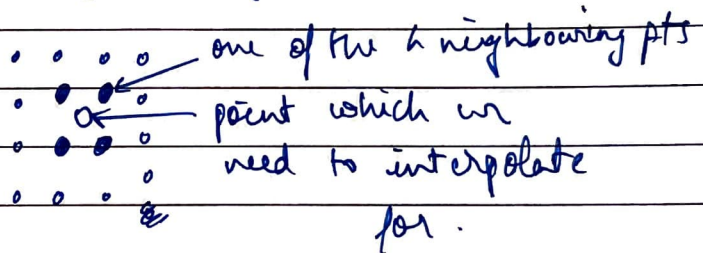 one of the 4 neighbouring pts
point which we
need to interpolate
for.